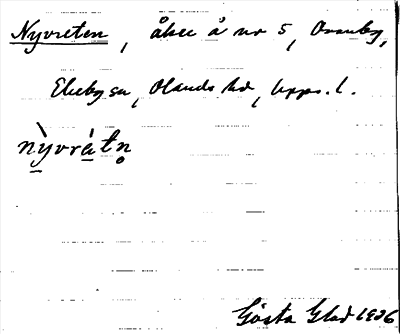 Nyvreten, åker å nr 5, Ovanby,
Ekeby sn, Olands hd, Upps. l.
nỳvrètn̥
Gösta Glad 1926